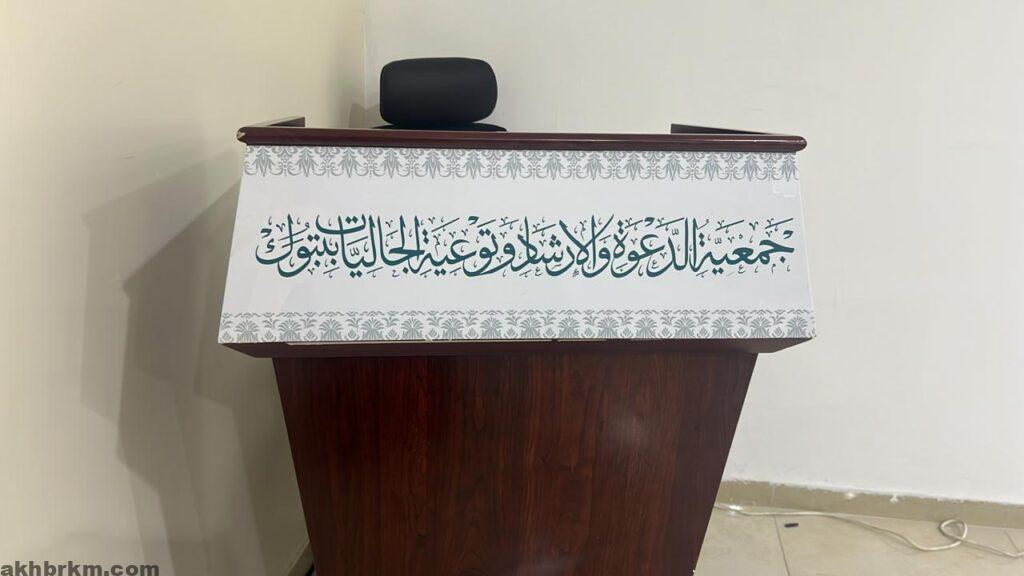 جَمْعِيَّةُ الدَّعْوَةِ وَالإِرْشَادِ وَتَوْعِيَةِ الجَالِيَاتِ بِتَبُوكْ
akhbrkm.com